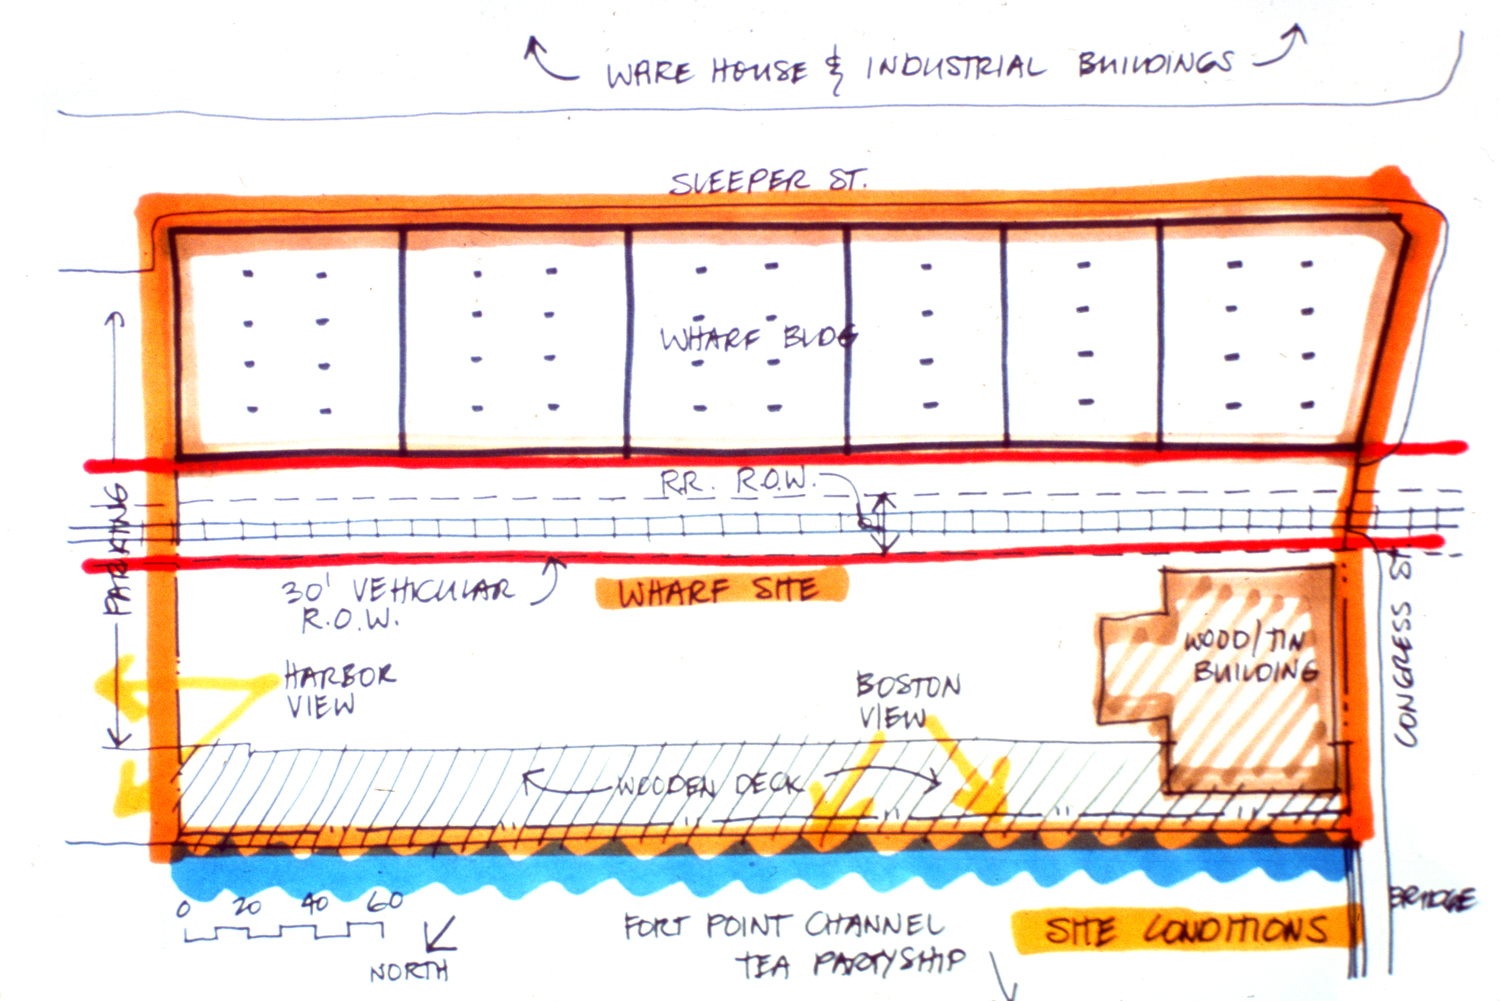 WARE HOUSE & INDUSTRIAL BUILDINGS
SLEEPER ST.
WHARF BLDG
R.R. R.O.W.
PARKING
30' VEHICULAR
R.O.W.
WHARF SITE
WOOD/TIN
BUILDING
CONGRESS ST
HARBOR
VIEW
BOSTON
VIEW
WOODEN DECK
0 20 40 60
NORTH
FORT POINT CHANNEL
TEA PARTYSHIP
SITE CONDITIONS
BRIDGE